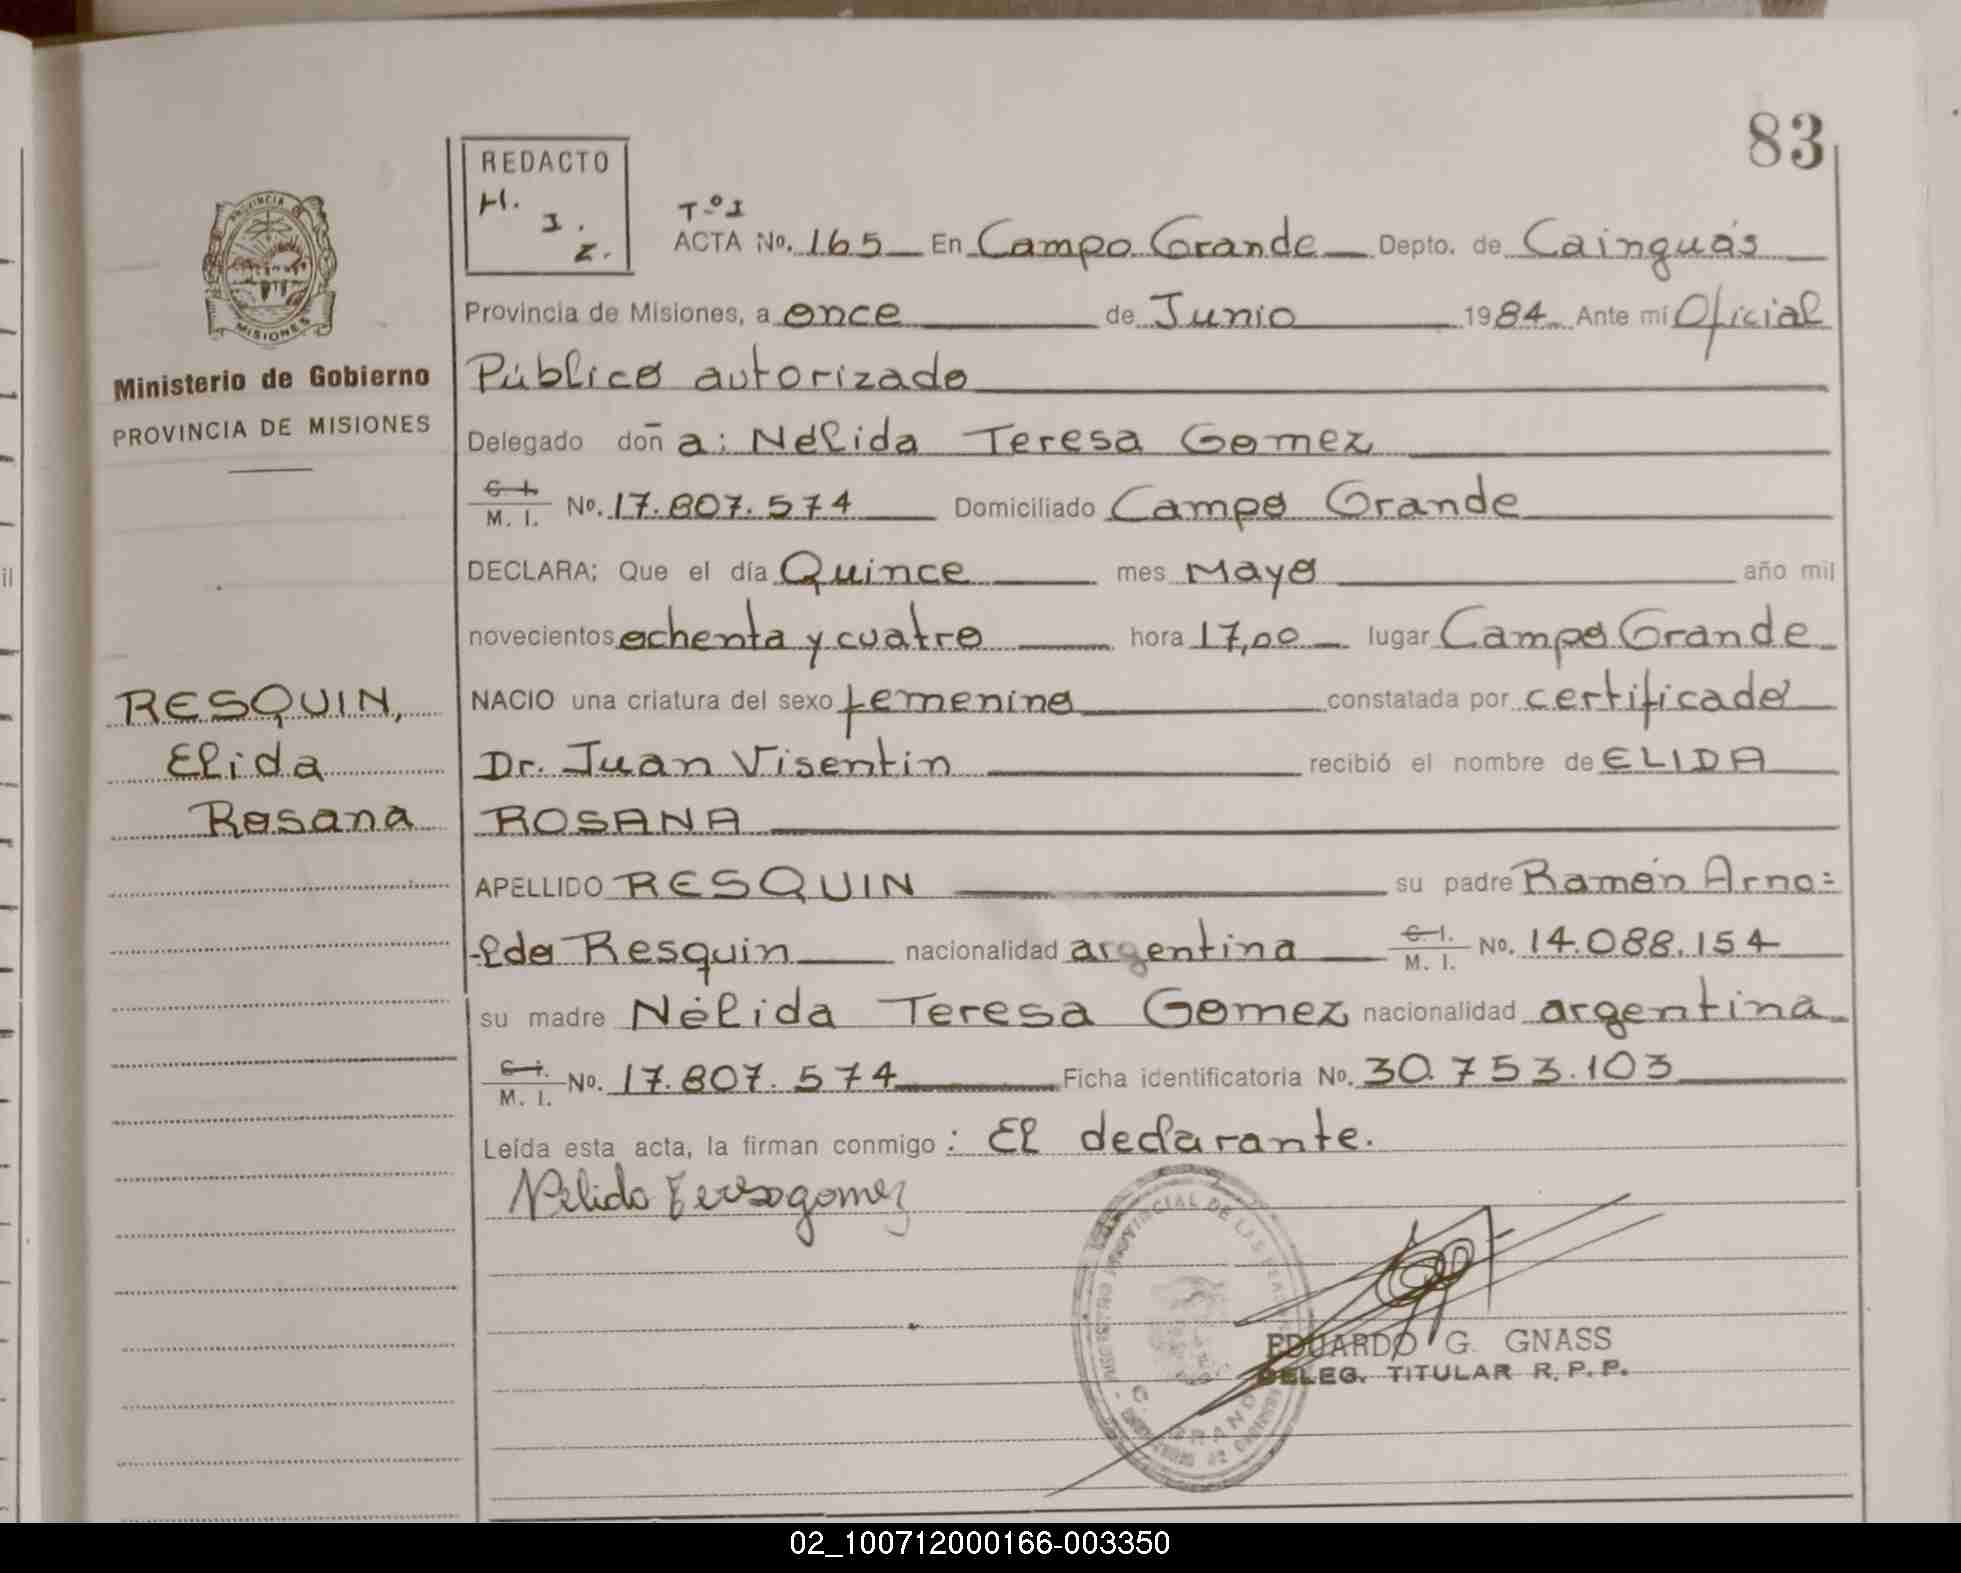 83
REDACTO
H.
I.
Z.
Tº I
ACTA No. 165 En Campo Grande Depto. de Cainguás
Provincia de Misiones, a once de Junio 1984 Ante mí Oficial
Público autorizado
Delegado don̄ a: Nélida Teresa Gomez
C. I. M. I. No. 17.807.574 Domiciliado Campo Grande
DECLARA; Que el día Quince mes Mayo año mil
novecientos ochenta y cuatro hora 17,00 lugar Campo Grande
NACIO una criatura del sexo femenino constatada por certificado
Dr. Juan Visentin recibió el nombre de ELIDA
ROSANA
APELLIDO RESQUIN su padre Ramón Arno=
-ldo Resquin nacionalidad argentina C. I. M. I. No. 14.088.154
su madre Nélida Teresa Gomez nacionalidad argentina
C. I. M. I. No. 17.807.574 Ficha identificatoria No. 30.753.103
Leída esta acta, la firman conmigo: El declarante.
Nelida Teresa gomez
EDUARDO G. GNASS
DELEG. TITULAR R. P. P.
PROVINCIA DE
MISIONES
Ministerio de Gobierno
PROVINCIA DE MISIONES
RESQUIN,
Elida
Rosana
il
PROVINCIAL DE LAS
02_100712000166-003350